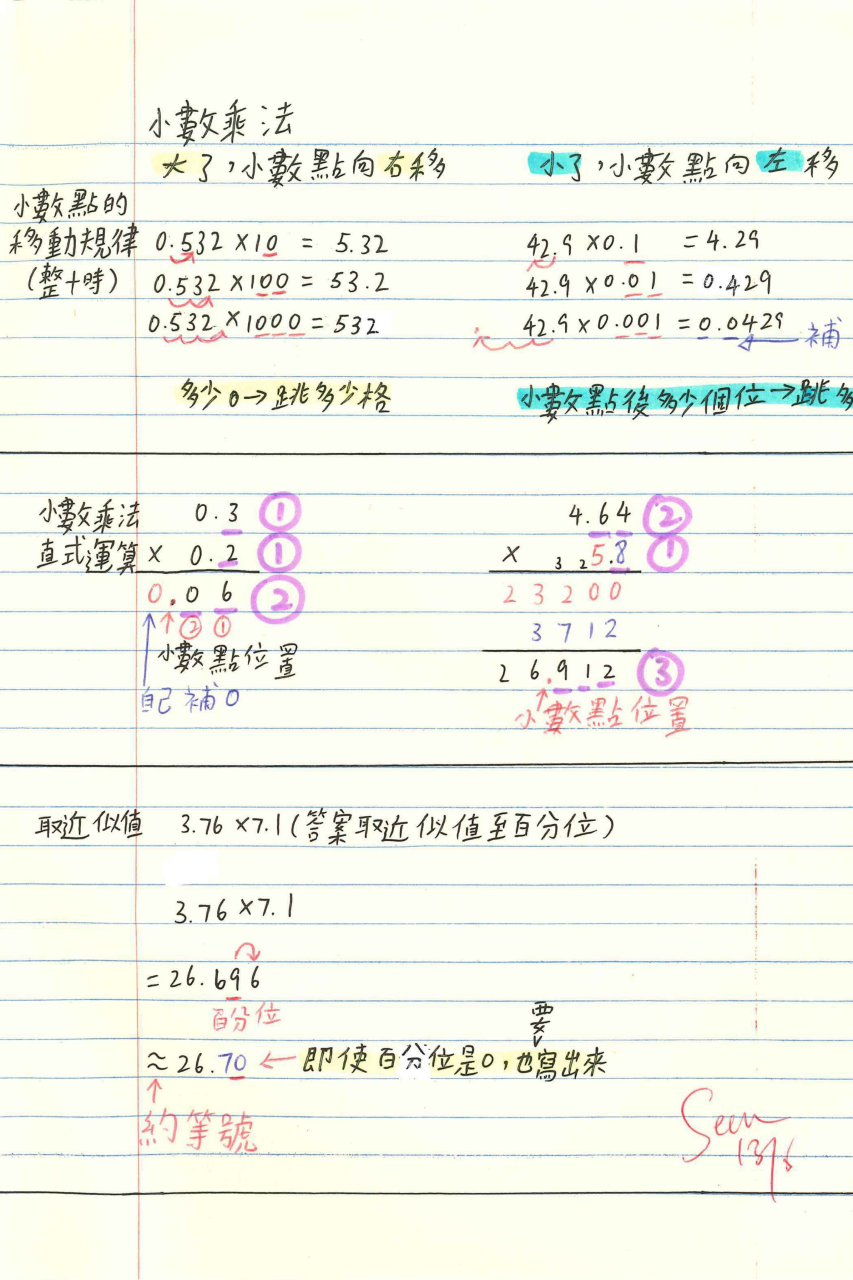 小數乘法
大了，小數點向右移
小了，小數點向左移
小數點的
移動規律
(整十時)
0.532 × 10 = 5.32
0.532 × 100 = 53.2
0.532 × 1000 = 532
42.9 × 0.1 = 4.29
42.9 × 0.01 = 0.429
42.9 × 0.001 = 0.0429
補
多少0→跳多少格
小數點後多少個位→跳多
小數乘法
直式運算
0.3 ①
× 0.2 ①
0.06 ②
② ①
小數點位置
自己補0
4.64 ②
× 3 2 5.8 ①
23200
3712
26.912 ③
小數點位置
取近似值 3.76 × 7.1 (答案取近似值至百分位)
3.76 × 7.1
= 26.696
百分位
要
≈ 26.70 ← 即使百分位是0，也寫出來
約等號
Seen
13/6